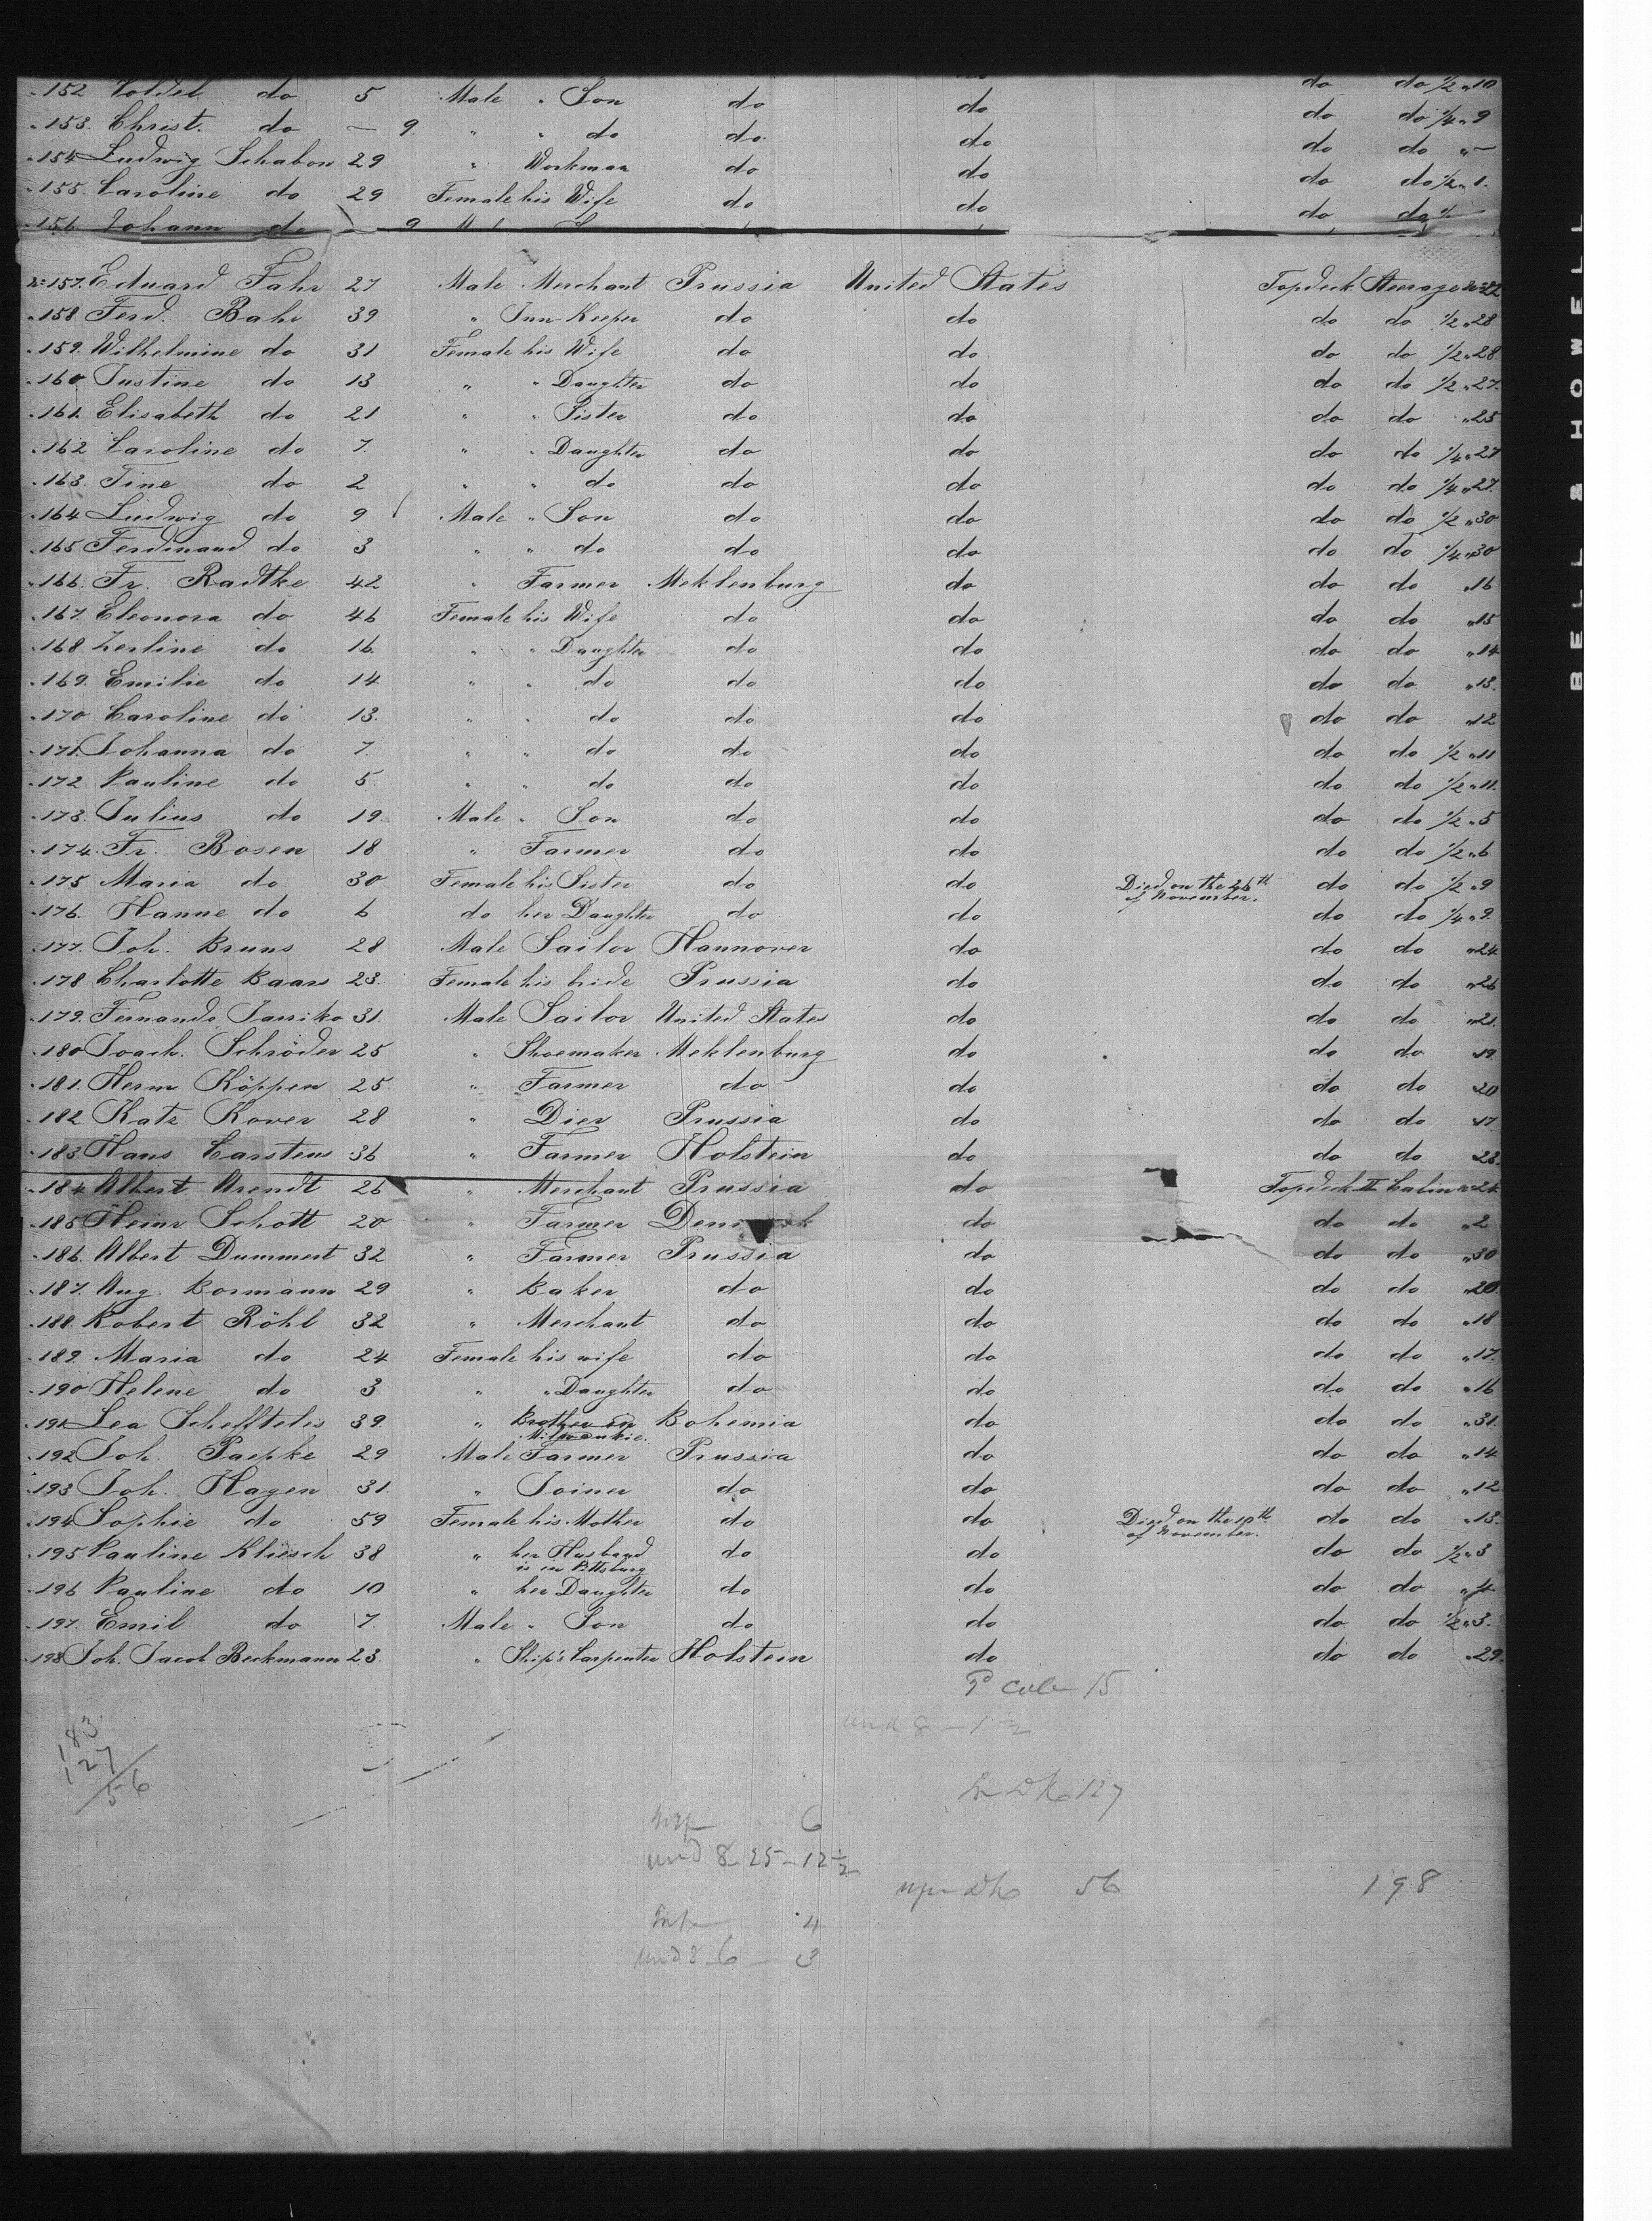 152 do 5 Male " Son do do do do 1/2 " 10
" 153. Christ. do — 9. " " do do do do do 1/4 " 9
" 154 Ludwig Schabow 29 " Workman do do do do " —
" 155. Caroline do 29 Female his Wife do do do do 1/2 " 1.
" 156 Johann do 9
No 157. Eduard Fahr 27 Male Merchant Prussia United States Topdeck Steerage No 22
" 158 Ferd. Bahr 39 " Inn-Keeper do do do do 1/2 " 28
" 159. Wilhelmine do 31 Female his Wife do do do do 1/2 " 28
" 160 Justine do 13 " " Daughter do do do do 1/2 " 27.
" 161. Elisabeth do 21 " " Sister do do do do " 25
" 162 Caroline do 7. " " Daughter do do do do 1/4 " 27
" 163. Tine do 2 " " do do do do do 1/4 " 27.
" 164 Ludwig do 9 Male " Son do do do do 1/2 " 30
" 165 Ferdinand do 3 " " do do do do do 1/4 " 30
" 166. Fr. Radtke 42 " Farmer Meklenburg do do do " 16
" 167. Eleonora do 46 Female his Wife do do do do " 15
" 168 Zerline do 16. " " Daughter do do do do " 14
" 169. Emilie do 14 " " do do do do do " 13.
" 170 Caroline do 13. " " do do do do do " 12
" 171. Johanna do 7. " " do do do do do 1/2 " 11
" 172 Pauline do 5 " " do do do do do 1/2 " 11.
" 173. Julius do 19. Male " Son do do do do 1/2 " 5
" 174. Fr. Bosen 18 " Farmer do do do do 1/2 " 6
" 175 Maria do 30 Female his Sister do do Died on the 26th of November. do do 1/2 " 9
" 176. Hanne do 6 do her Daughter do do do do 1/4 " 9.
" 177. Joh. Bruns 28 Male Sailor Hannover do do do " 24
" 178 Charlotte Baars 23. Female his bride Prussia do do do " 26
" 179. Fernando Jarriko 31. Male Sailor United States do do do " 21.
" 180 Joach. Schröder 25 " Shoemaker Meklenburg do do do " 19
" 181. Herm Köppen 25 " Farmer do do do do " 20
" 182 Katz Kover 28 " Dier Prussia do do do " 17
" 183. Hans Carstens 36 " Farmer Holstein do do do " 23.
" 184 Albert Arendt 26 " Merchant Prussia do Topdeck II Cabin No 24
" 185 Heinr Schott 20 " Farmer do do do " 2
" 186. Albert Dummert 32 " Farmer Prussia do do do " 30
" 187. Aug. Bormann 29 " Baker do do do do " 20.
" 188. Robert Röhl 32 " Merchant do do do do " 18
" 189. Maria do 24 Female his wife do do do do " 17.
" 190 Helene do 3 " " Daughter do do do do " 16
" 191. Lea Scheffteles 39. " Brother in Milwaukie. Bohemia do do do " 31.
" 192 Joh. Paepke 29 Male Farmer Prussia do do do " 14
" 193 Joh. Hagen 31 " Joiner do do do do " 12
" 194 Sophie do 59 Female his Mother do do Died on the 10th of November. do do " 13.
" 195 Pauline Kliesch 38 " her Husband is in Pittsburg do do do do 1/2 " 3
" 196 Pauline do 10 " her Daughter do do do do " 4
" 197. Emil do 7. Male " Son do do do do 1/2 " 3.
" 198 Joh. Jacob Beckmann 23. " Ship's Carpenter Holstein do do do " 29.
15
183
127
56
und 8 — 1 1/2
127
6
und 8 - 25 - 12 1/2
56
198
4
und 8 - 6 — 3
BELL & HOWELL